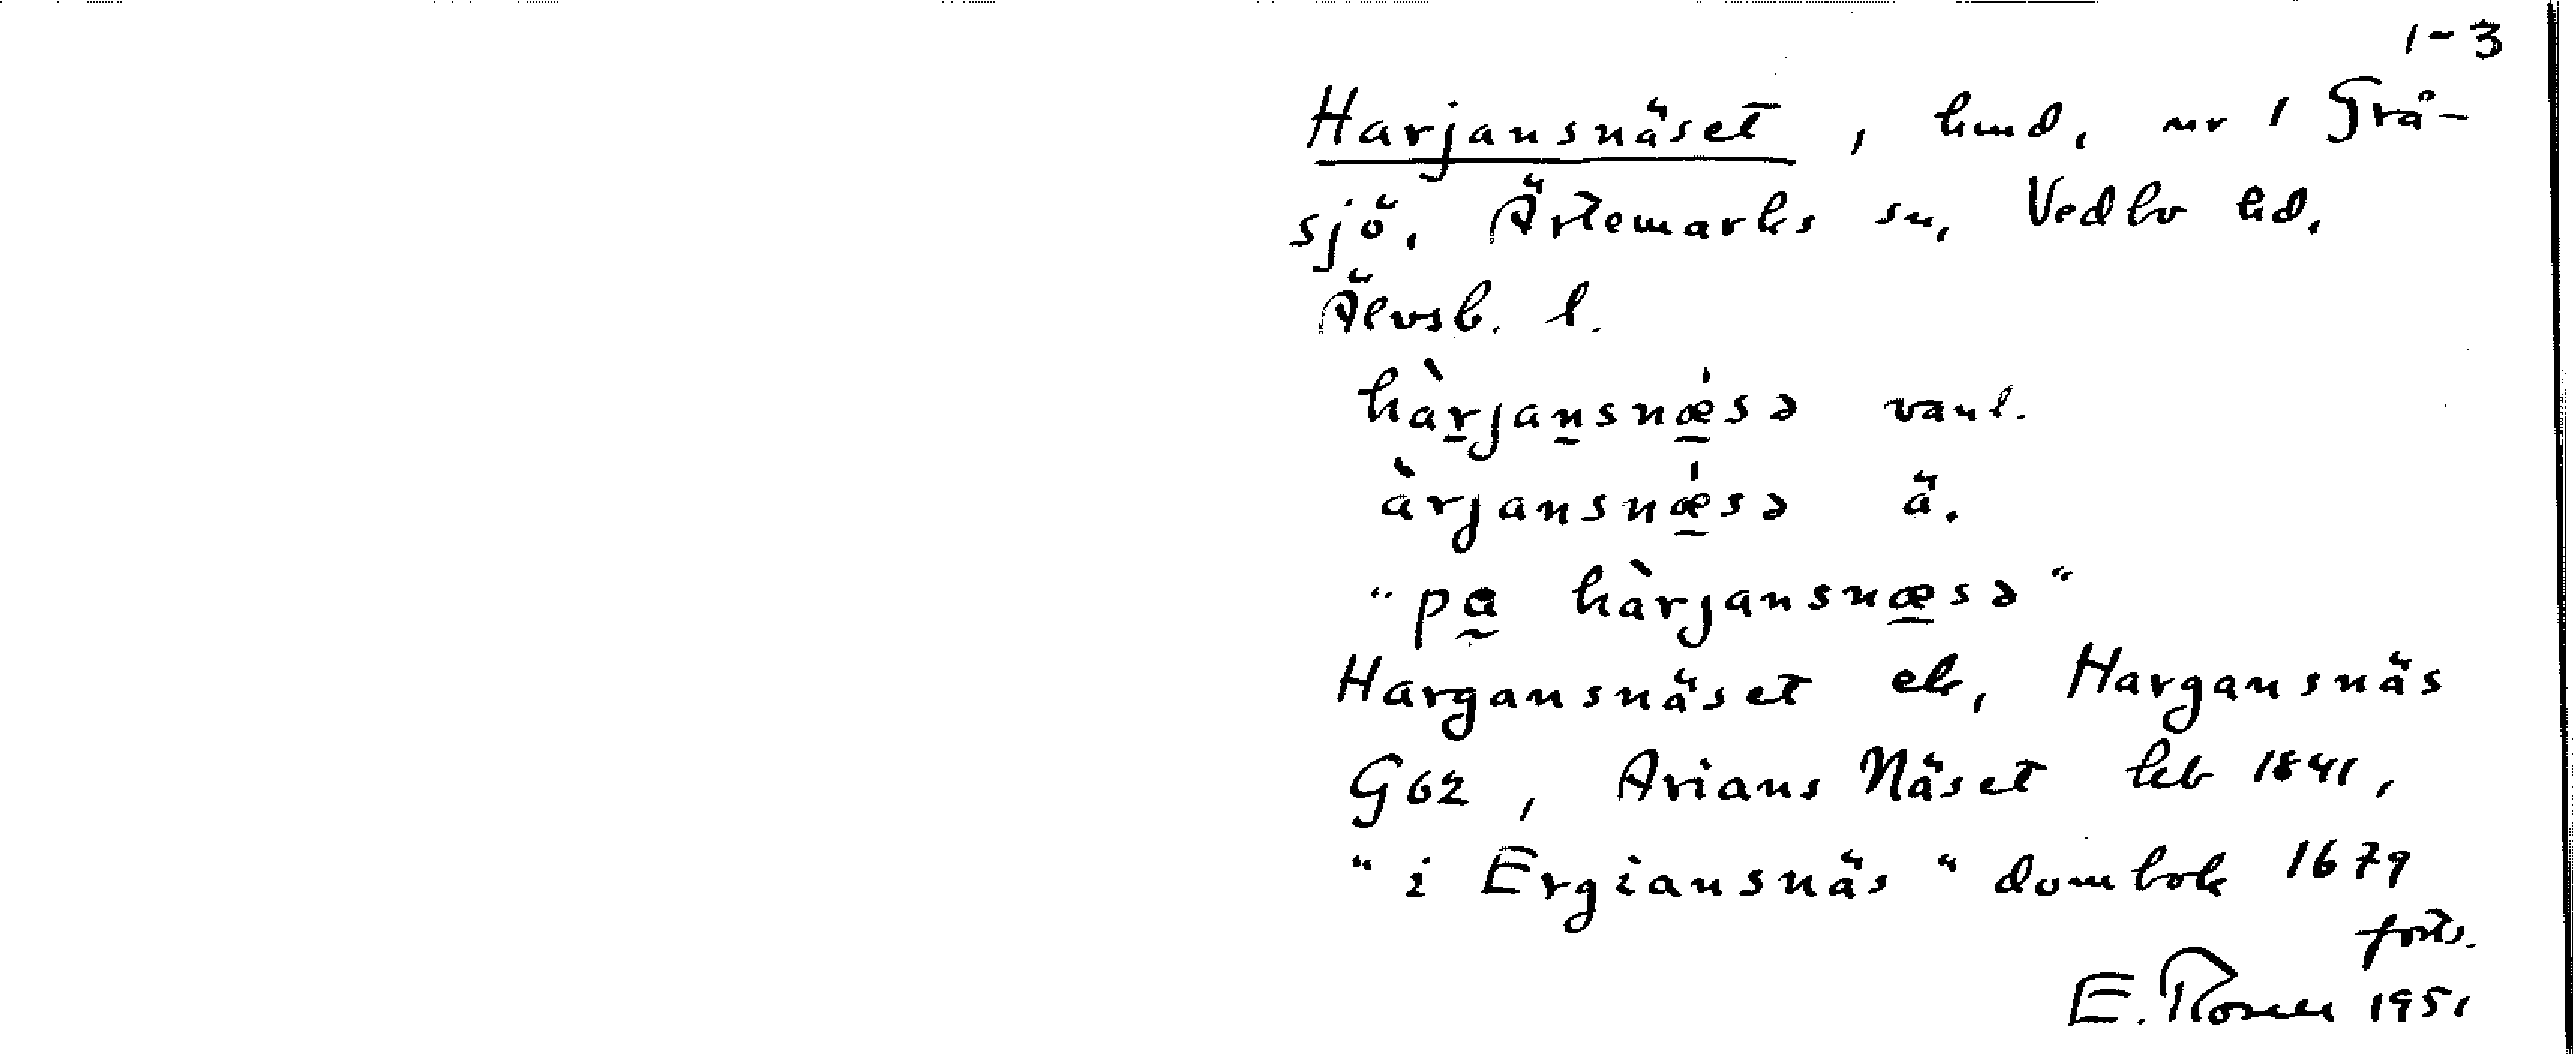 1-3
Harjansnäset, hmd. nr 1 Grå-
sjö. Ärtemarks sn, Vedbo hd.
Älvsb. l.
hàrjansnǽsə vanl.
àrjansnǽsə ä.
"pa hàrjansnæsə"
Hargansnäset ek, Hargansnäs
G62, Arians Näset kb 1841,
"i Ergiansnäs" dombok 1679
forts.
E. Rosell 1951